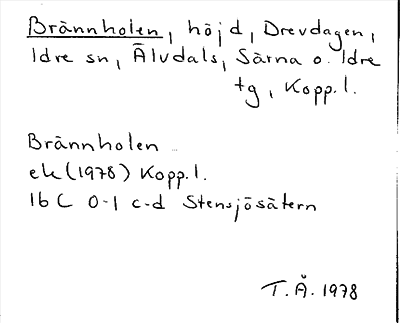 Brännholen, höjd, Drevdagen,
Idre sn, Älvdals, Särna o. Idre
tg, Kopp.l.
Brännholen
ek (1978) Kopp.l.
16 C 0-1 c-d Stensjösätern
T.Å. 1978